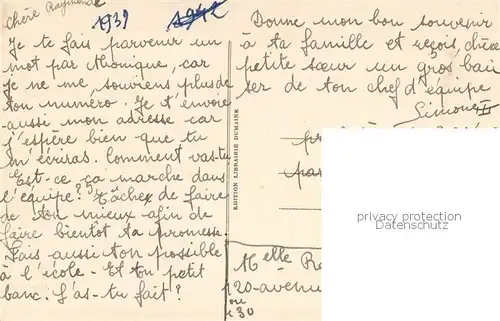 Chère Raymonde
1939 1942
Je te fais parvenir un
mot par Monique, car
je ne me souviens plus de
ton numéro. Je t'envoie
aussi mon adresse car
j'espère bien que tu
m'écriras. Comment vas-tu
Est-ce que ça marche dans
l'équipe? Tâchez de faire
de ton mieux afin de
faire bientôt ta promesse.
Fais aussi ton possible
à l'école - Et ton petit
banc. L'as-tu fait?
EDITION LIBRAIRIE DUMAINE
Donne mon bon souvenir
à ta famille et reçois, chère
petite sœur un gros bai
ser de ton chef d'équipe
Simone II
privacy protection
Datenschutz
Melle
120-avenue
ou
130